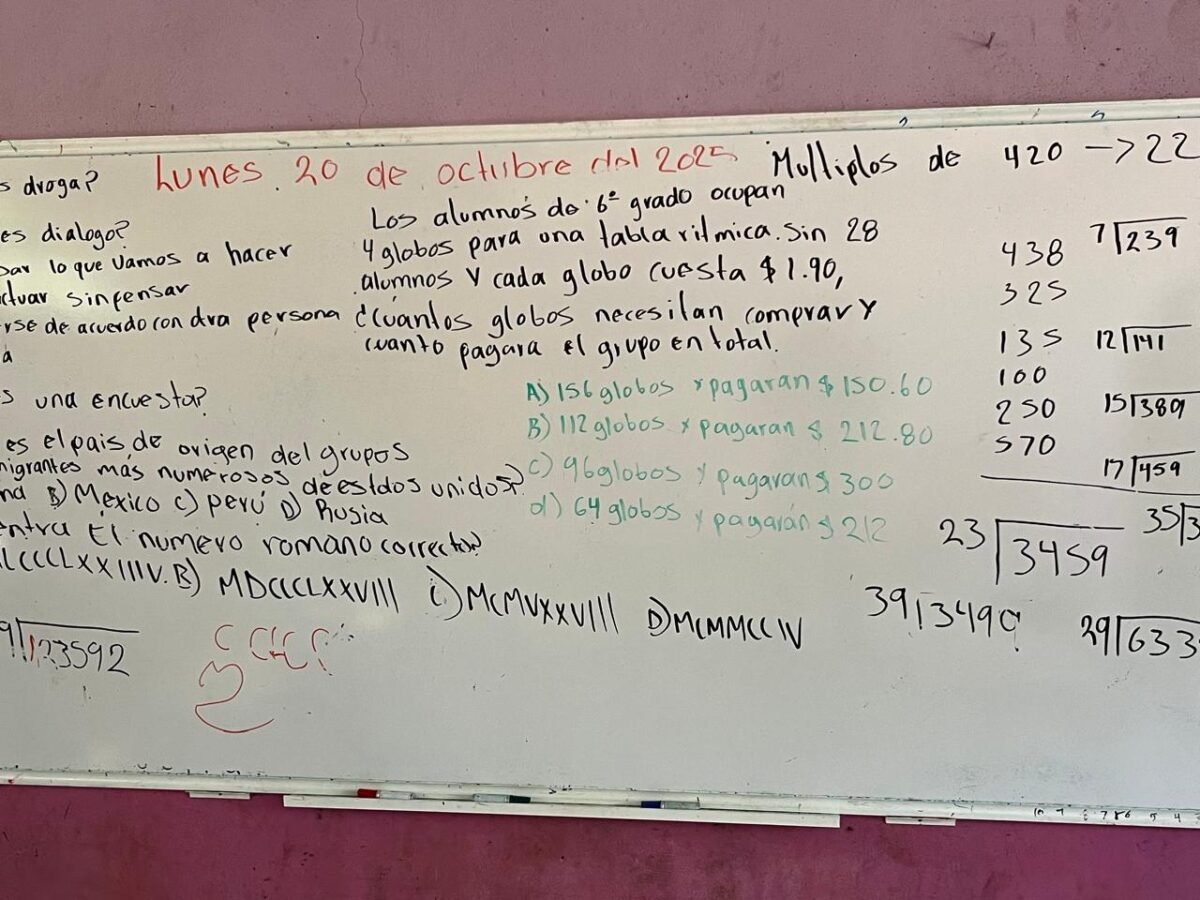 Lunes 20 de octubre del 2025
Multiplos de 420 -> 22
s droga?
es dialogo?
sar lo que vamos a hacer
ctuar sinpensar
rse de acuerdo con otra persona
a
s una encuesta?
es el pais de origen del grupos
migrantes más numerosos de estdos unidos?
na B) Mexico c) perú D) Rusia
entra El numero romano correcto?
B) MDCCCLXXVIII C) MCMVXXVIII D) MCMMCCIV
9 123592
Los alumnos de 6º grado ocupan
4 globos para una tabla ritmica. Sin 28
alumnos y cada globo cuesta $ 1.90,
¿Cuántos globos necesitan comprar y
cuanto pagara el grupo en total.
A) 156 globos y pagaran $ 150.60
B) 112 globos y pagaran $ 212.80
c) 96 globos y pagaran $ 300
d) 64 globos y pagarán $ 212
438
325
135
100
250
570
7 239
12 141
15 389
17 459
23 3459
35 3
39 3490
29 633